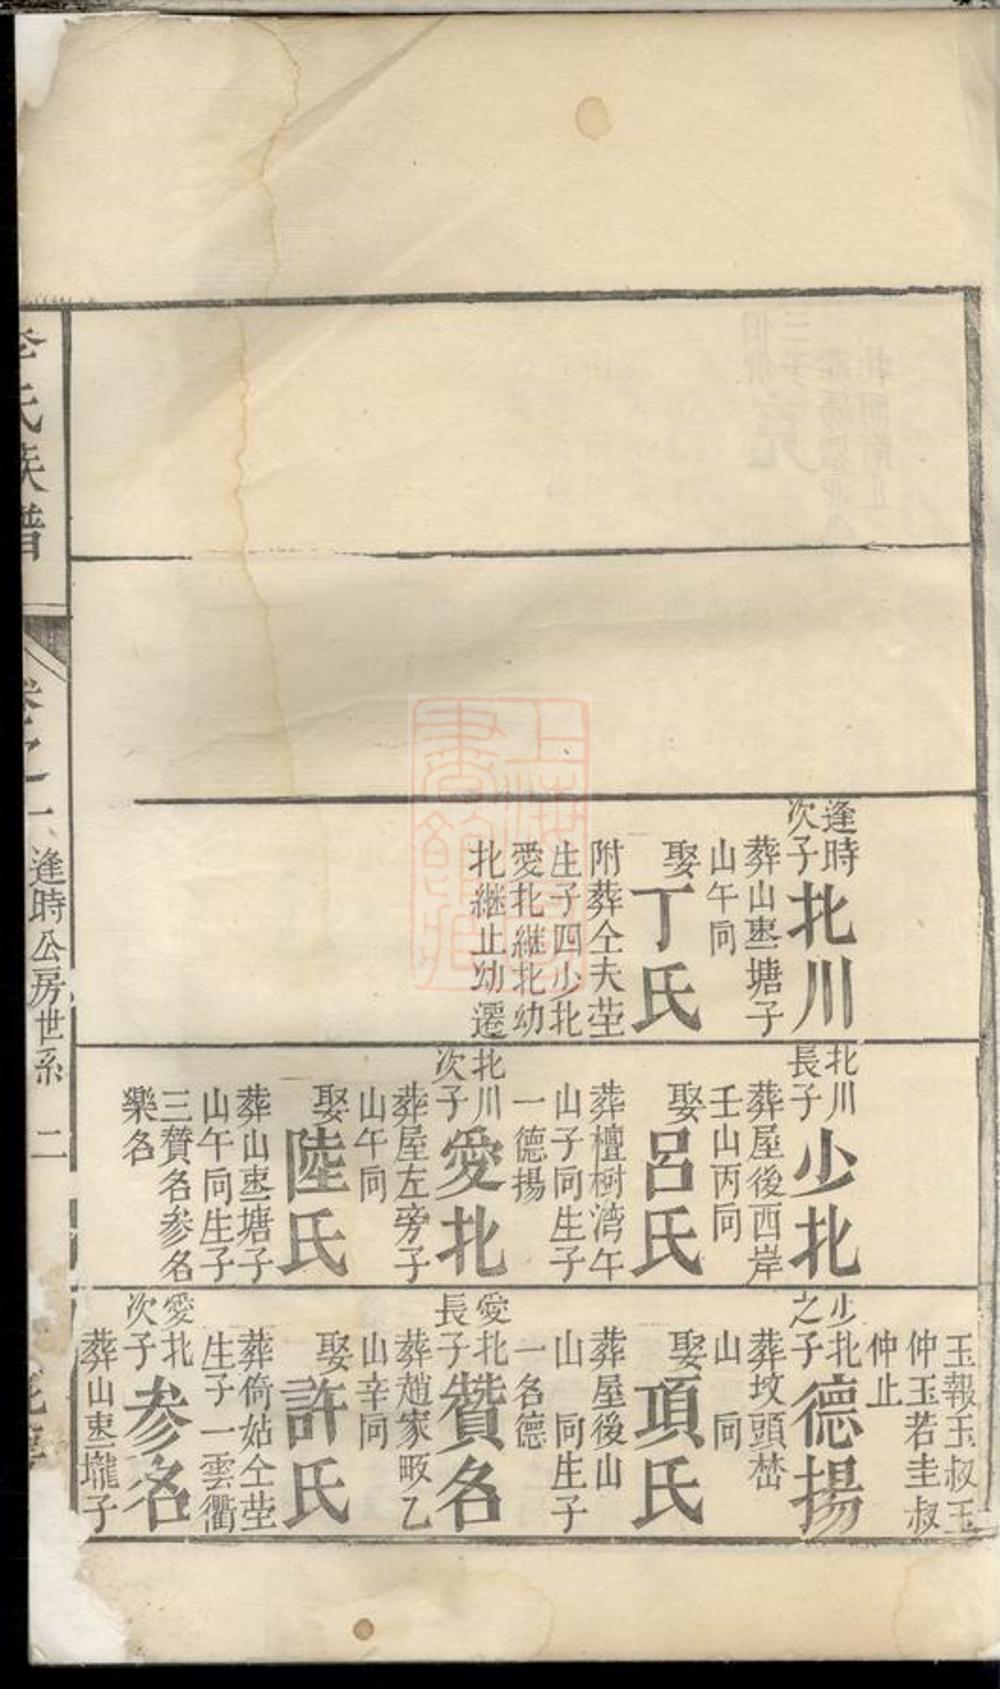 逢時
次子
北川
葬山塘子
山午向
娶
丁氏
附葬仝夫塋
生子四少北
愛北継北幼
北継止幼遷
北川
長子
少北
葬屋後西岸
壬山丙向
娶
呂氏
葬檀樹湾午
山子向生子
一德揚
北川
次子
愛北
葬屋左旁子
山午向
娶
陸氏
葬山塘子
山午向生子
三賛名参名
樂名
玉報玉叔玉
仲玉若圭叔
仲止
少北
之子
德揚
葬坟頭
山 向
娶
項氏
葬屋後山
山 向生子
一名德
愛北
長子
賛名
葬趙家畈乙
山辛向
娶
許氏
葬倚姑仝塋
生子一雲衢
愛北
次子
参名
葬山壠子
氏族譜
卷之一
逢時公房世系
二
上海圖書館藏